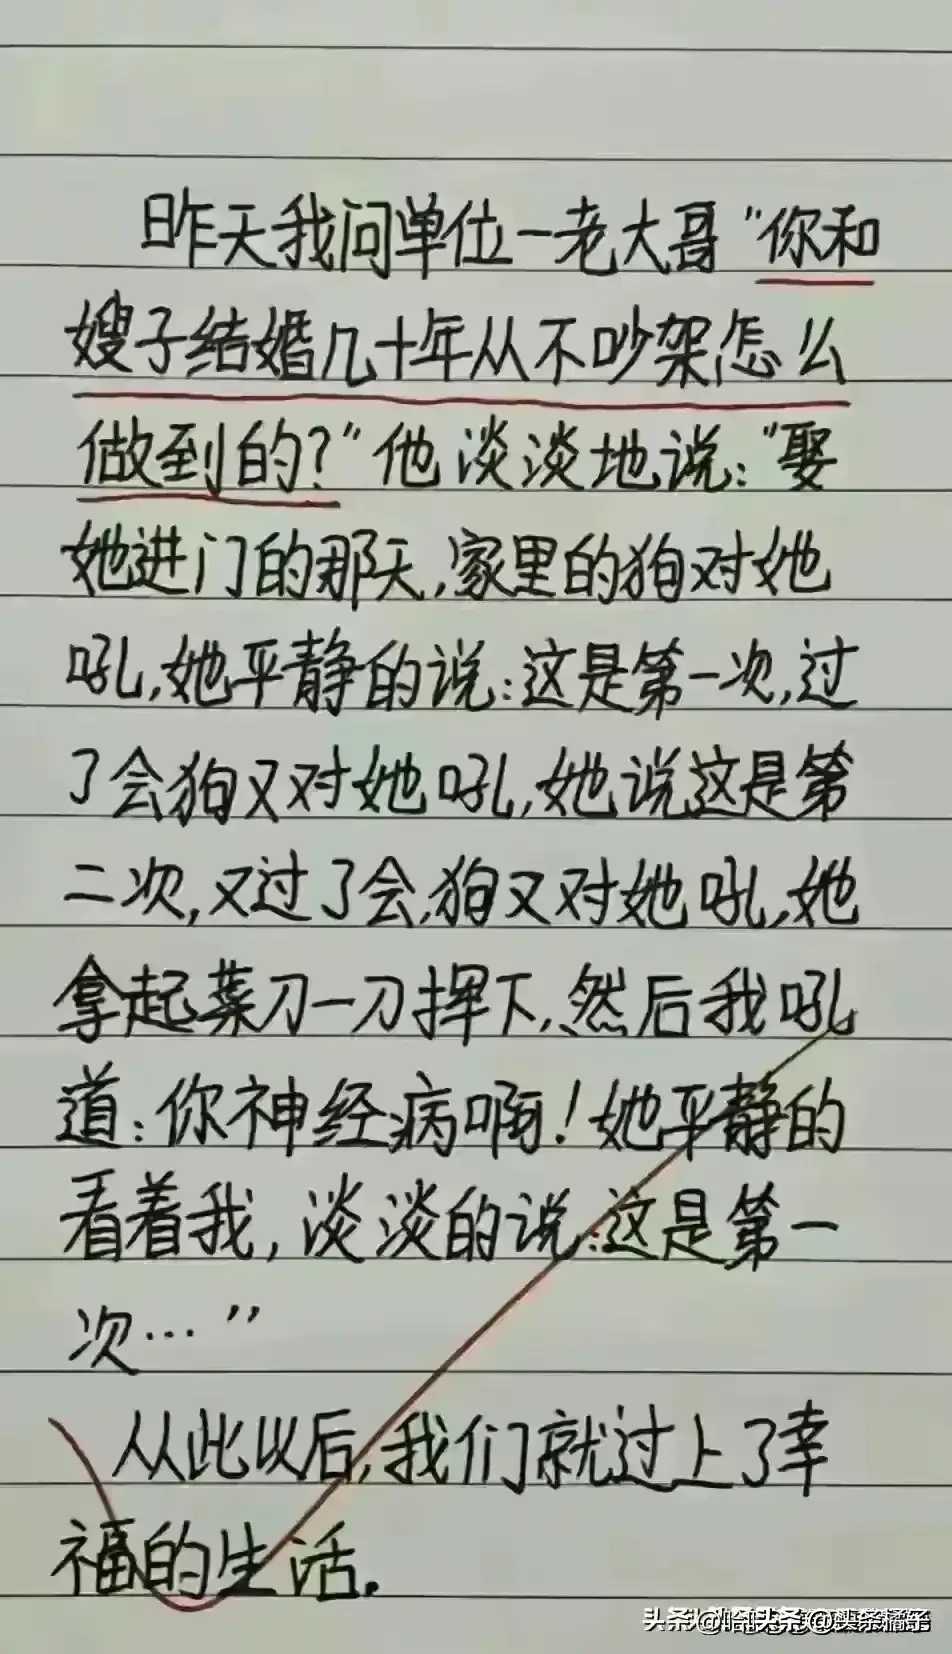 昨天我问单位一老大哥"你和
嫂子结婚几十年从不吵架怎么
做到的?"他淡淡地说:"娶
她进门的那天,家里的狗对她
吼,她平静的说:这是第一次,过
了会狗又对她吼,她说这是第
二次,又过了会,狗又对她吼,她
拿起菜刀一刀挥下,然后我吼
道:你神经病啊!她平静的
看着我,淡淡的说:这是第一
次…"
从此以后,我们就过上了幸
福的生活.
头条@